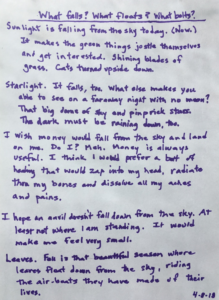 What falls? What floats? What bolts?
Sunlight is falling from the sky today. (Wow.)
It makes the green things jostle themselves
and get interested. Shining blades of
grass. Cats turned upside down.
Starlight. It falls, too. What else makes you
able to see on a faraway night with no moon?
That big dome of sky and pinprick stars.
The dark must be raining down, too.
I wish money would fall from the sky and land
on me. Do I? Meh. Money is always
useful. I think I would prefer a bolt of
healing that would zap into my head, radiate
thru my bones and dissolve all my aches
and pains.
I hope an anvil doesn't fall down from the sky. At
least not where I am standing. It would
make me feel very small.
Leaves. Fall is that beautiful season where
leaves float down from the sky, riding
the air-boats they have made of their
lives.
4-8-18